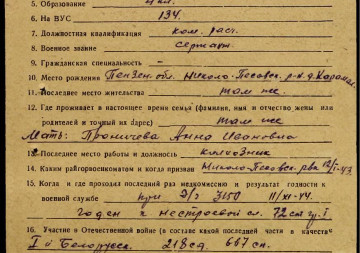 5. Образование 4 кл.
6. На ВУС 134.
7. Должностная квалификация ком. расч.
8. Военное звание сержант.
9. Гражданская специальность –
10. Место рождения Пензен. обл. Николо-Пестовск. р-н. д.
11. Последнее место жительства там же.
12. Где проживает в настоящее время семья (фамилия, имя и отчество жены или
родителей и точный их адрес) там же
Мать: Проничева Анна Ивановна
13. Последнее место работы и должность колхозник
14. Каким райгорвоенкоматом и когда призван Николо-Пестовск. рвк 12/I-43.
15. Когда и где проходил последний раз медкомиссию и результат годности к
военной службе при Э/г 3150 11/XI-44.
годен к нестроевой сл. 72 ст. гр. I
16. Участие в Отечественной войне (в составе какой последней части в качестве
I й Белорусск. 218 сд. 667 сп.